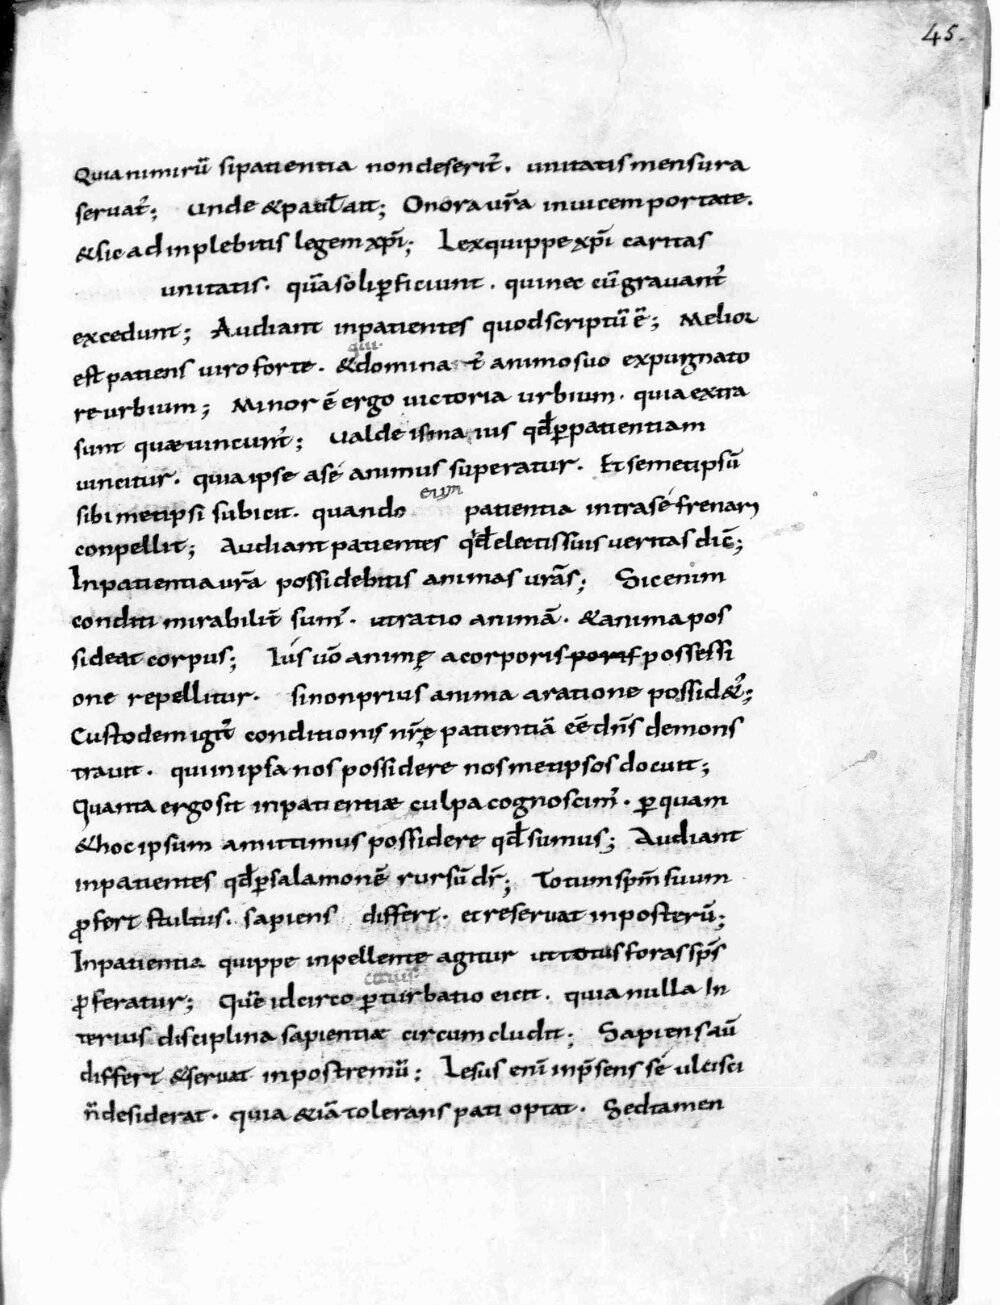 45.
Quia nimirū si patientia non deserit̄. unitatis mensura
servat̄; Unde & paul̄ ait; Onora vr̄a invicem portate.
& sic adinplebitis legem xp̄i; Lex quippe xp̄i caritas
unitatis. quā soli p̄ficiunt. qui nec cū gravant̄
excedunt; Audiant inpatientes quod scriptū ē; Melior
qui.
est patiens viro forte. & dominat̄ animo suo expugnato
re urbium; Minor ē ergo victoria urbium. quia extra
sunt quae vincunt̄; Valde is maius qd̄ p̄ patientiam
vincitur. quia ipse a sé animus superatur. Et semetipsū
eum
sibimetipsi subicit. quando patientia intra sé frenari
conpellit; Audiant patientes qd̄ electis suis veritas dic̄;
In patientia vr̄a possidebitis animas vrās; Sic enim
conditi mirabilit̄ sum̄. ut ratio animā. & anima pos
sideat corpus; Ius v̄o animę a corporis possessi
one repellitur. si non prius anima a ratione possid&̄;
Custodem igit̄ conditionis nr̄ę patientiā eē dn̄s demons
travit. qui in ipsa nos possidere nosmetipsos docuit;
Quanta ergo sit inpatientiae culpa cognoscim̄. p̄ quam
& hoc ipsum amittimus possidere qd̄ sumus; Audiant
inpatientes qd̄ p̄ salamonē rursū dr̄; Totum sp̄m suum
p̄fert stultus. sapiens differt. et reservat in posterū;
Inpatientia quippe inpellente agitur ut totus foras sp̄s
citius
p̄feratur; Quē idcirco p̄turbatio eicit. quia nulla in
terius disciplina sapientiae circumcludit; Sapiens aū
differt & servat in postremū; Lesus enī in p̄sens sé ulcisci
n̄ desiderat. quia &iā tolerans pati optat. Sed tamen